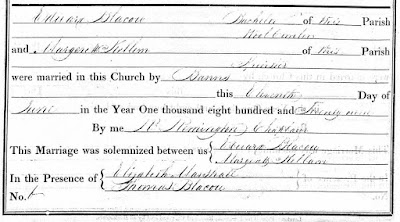 Edward Blacow Bachelor of this Parish
and Margaret Kellem of this Parish
Spinster
were married in this Church by Banns
this Eleventh Day of
June in the Year One thousand eight hundred and Twenty nine
By me Chaplain
This Marriage was solemnized between us { Edward Blacow
Margaret Kellam
In the Presence of { Elizabeth
Thomas Blacow
No.